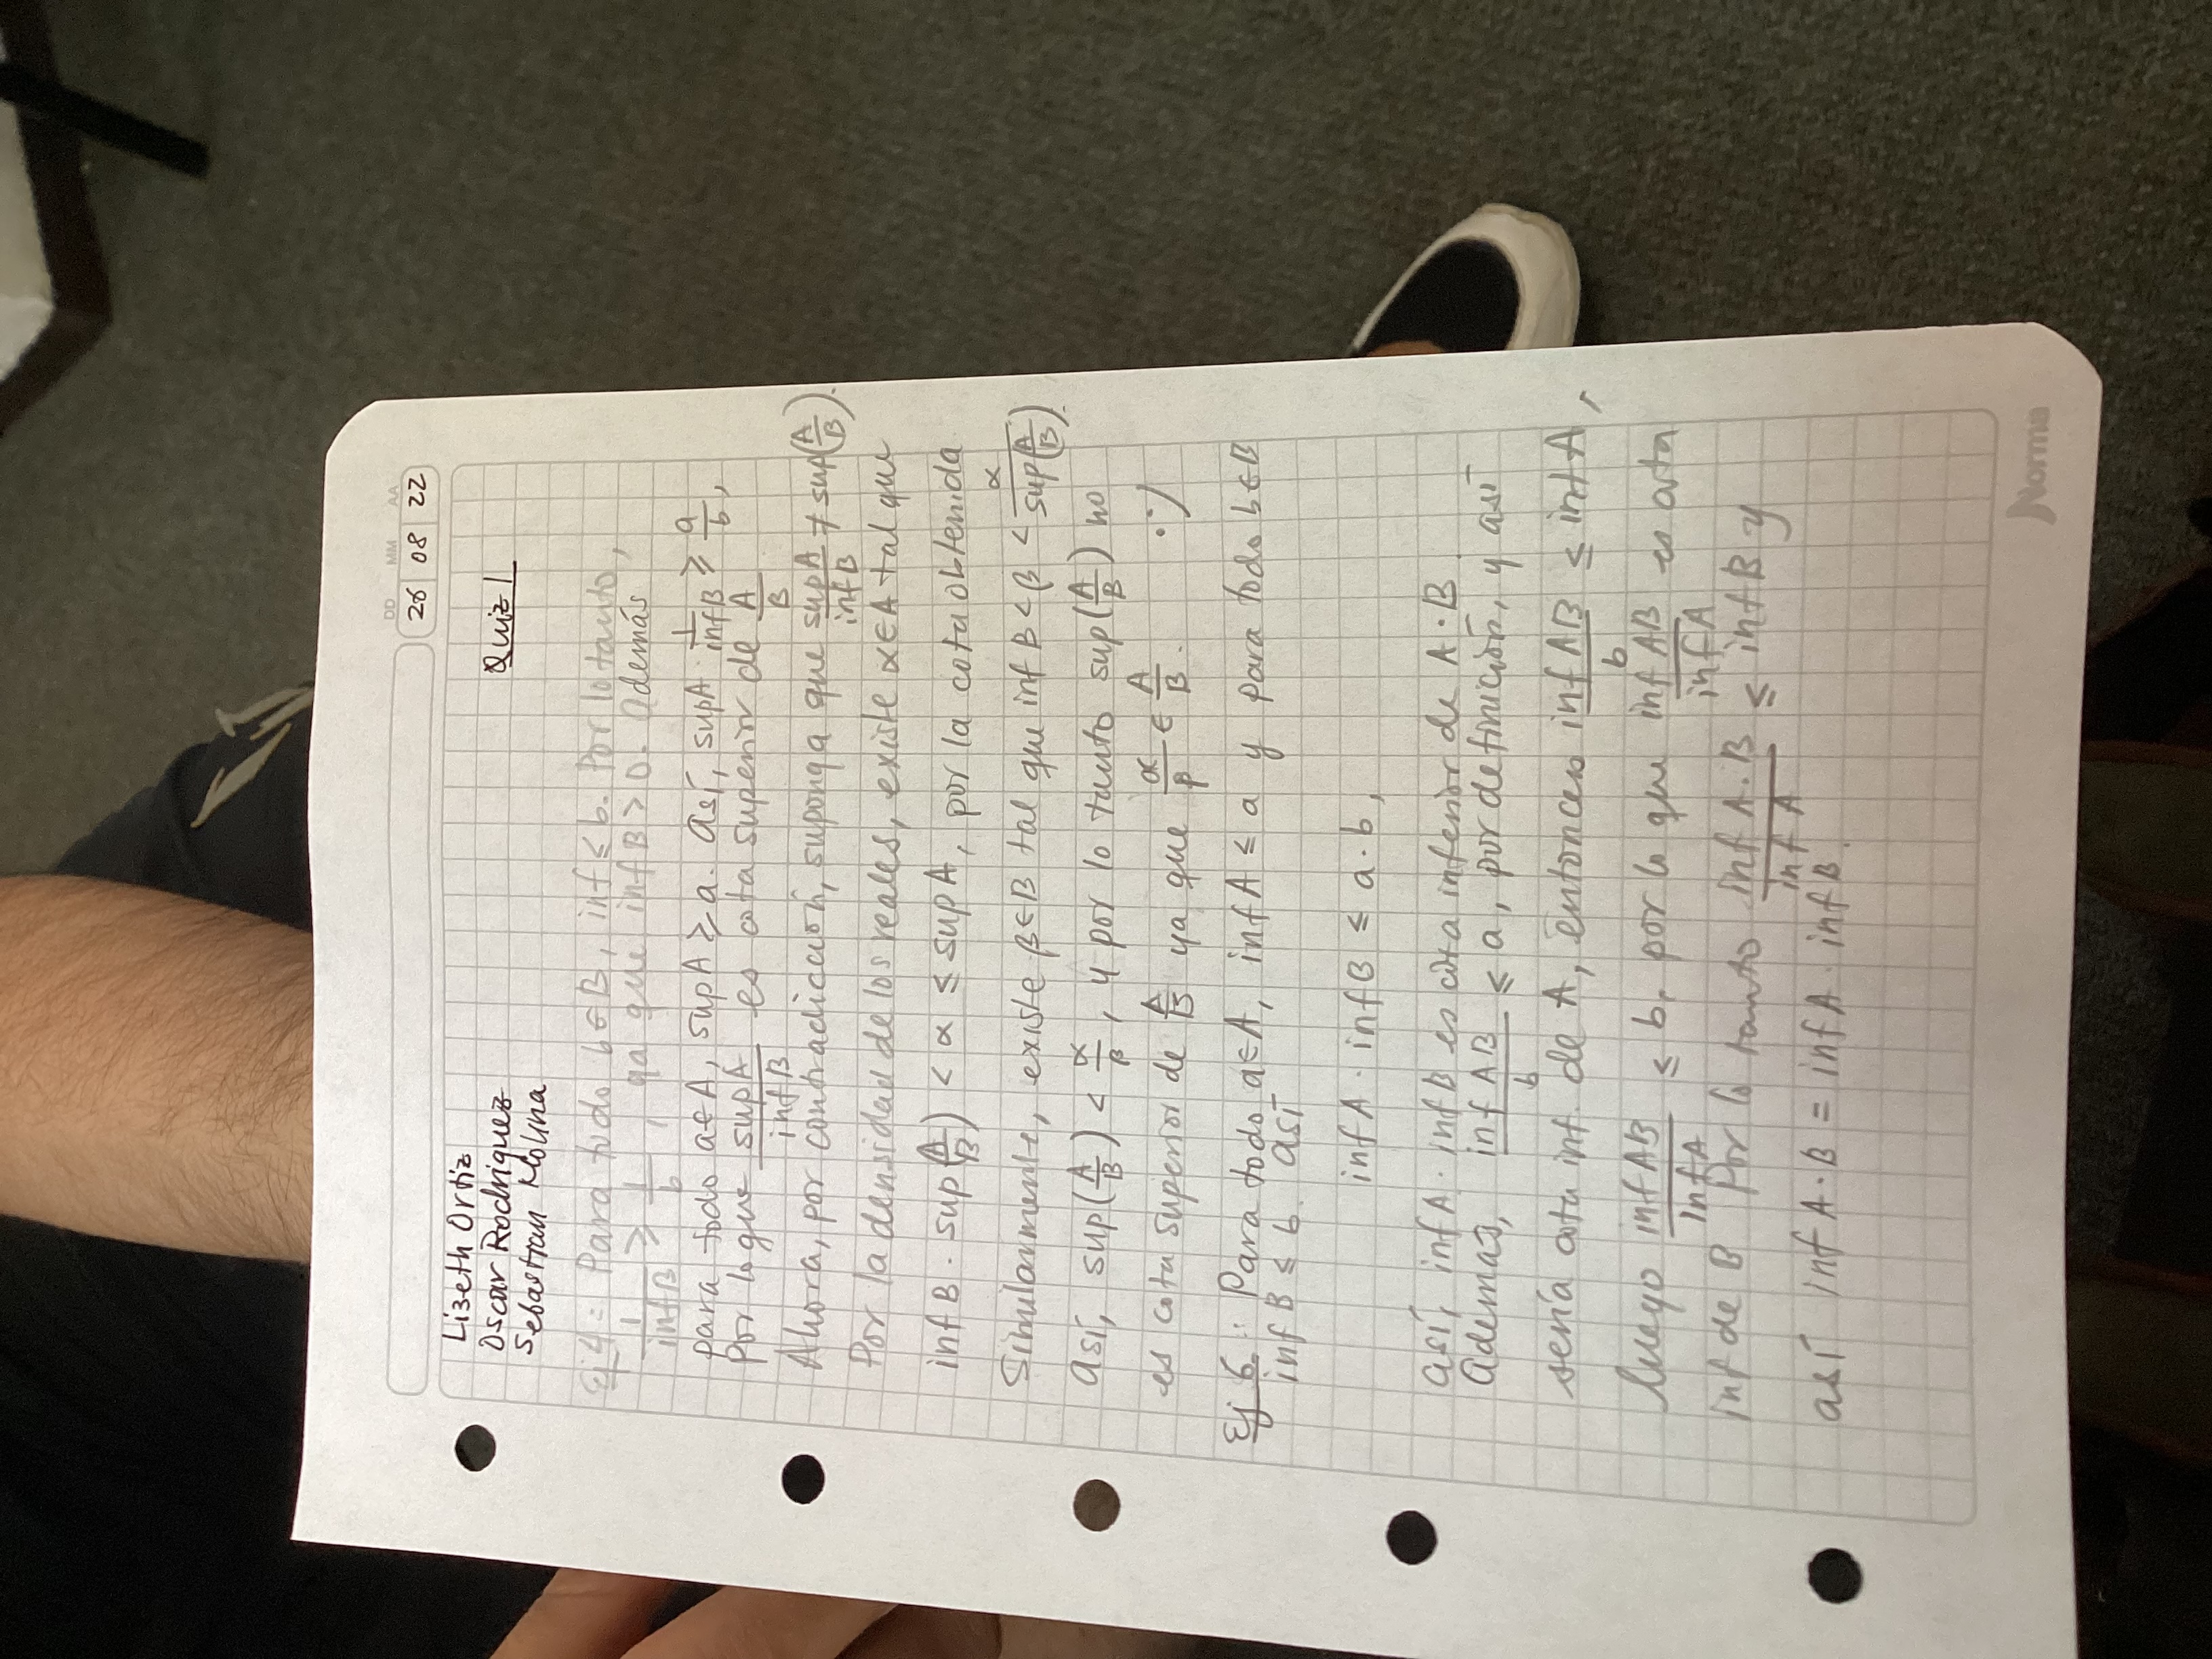 DD MM AA
26 08 22
Lizeth Ortiz
Oscar Rodriguez
Quiz 1
Sebastian Molina
Ej 4: Para todo b ∈ B, inf ≤ b. Por lo tanto,
1/inf B ≥ 1/b, ya que inf B > 0. Además
para todo a ∈ A, sup A ≥ a. Así, sup A · 1/inf B ≥ a/b,
Por lo que sup A/inf B es cota superior de A/B
Ahora, por contradicción, suponga que sup A/inf B ≠ sup(A/B).
Por la densidad de los reales, existe α ∈ A tal que
inf B · sup(A/B) < α ≤ sup A, por la cota obtenida
Similarmente, existe β ∈ B tal que inf B < β < α/sup(A/B).
Así, sup(A/B) < α/β, y por lo tanto sup(A/B) no
es cota superior de A/B ya que α/β ∈ A/B.
Ej 6: Para todo a ∈ A, inf A ≤ a y para todo b ∈ B
inf B ≤ b. Así
inf A · inf B ≤ a · b,
así, inf A · inf B es cota inferior de A · B
Ademas, inf AB/b ≤ a, por definición, y así
sería cota inf. de A, entonces inf AB/b ≤ inf A,
luego inf AB/inf A ≤ b, por lo que inf AB/inf A es cota
inf de B Por lo tanto inf A·B/inf A ≤ inf B y
así inf A·B = inf A · inf B.
Norma